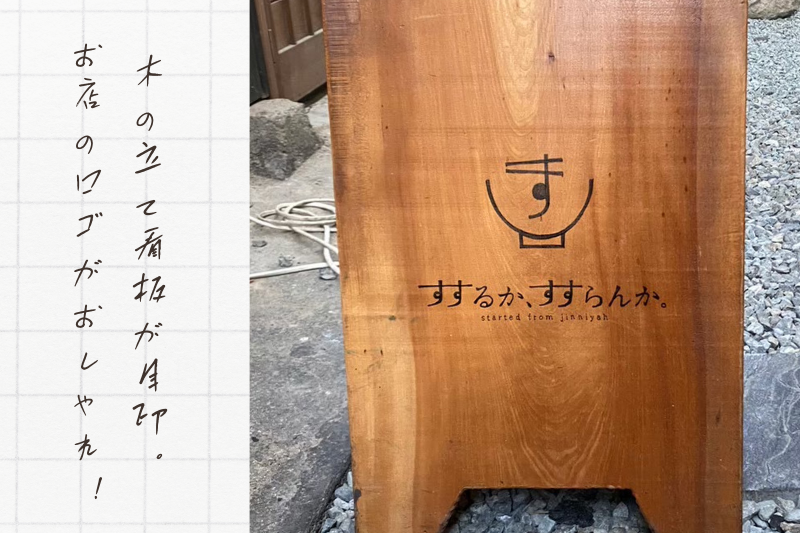 木の立て看板が目印。
お店のロゴがおしゃれ！
す
すするか、すすらんか。
started from jinniyah